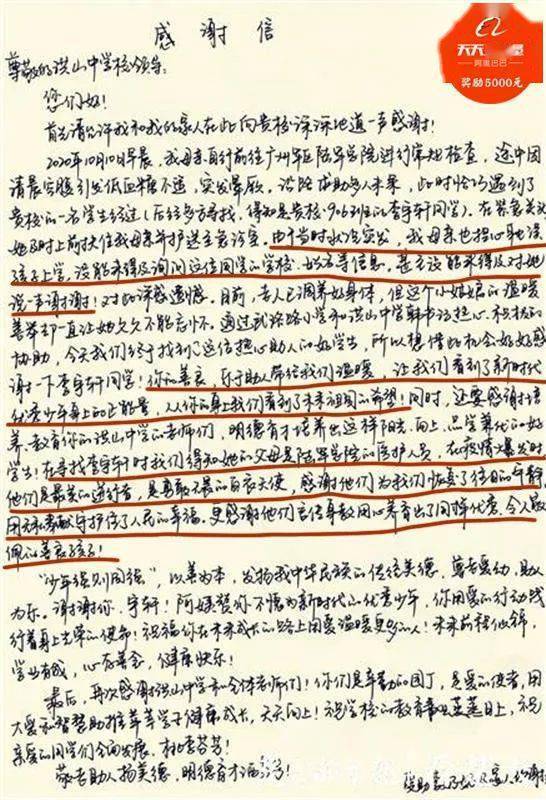 天天
阿里巴巴
奖励5000元
感谢信
尊敬的洪山中学校领导:
您们好!
首先请允许我和我的家人在此向贵校深深地道一声感谢!
2020年10月10日早晨,我母亲自行前往广州军区陆军总医院进行常规检查,途中因
清晨空腹引发低血糖不适,突发晕厥,沿路求助多人未果,此时恰巧遇到了
贵校的一名学生经过(后经多方寻找,得知是贵校906班的李宇轩同学)。在紧急关头
她及时上前扶住我母亲并护送至急诊室。由于当时状况突发,我母亲也担心耽误
孩子上学,没能来得及询问这位同学的学校、姓名等信息。甚至没能来得及对她
说一声谢谢!对此深感遗憾。目前,老人已调养好身体,但这个小姑娘的温暖
善举却一直让她久久不能忘怀。通过武珞路小学和洪山中学解书记热心、积极的
协助,今天我们终于找到了这位热心助人的好学生,所以想借此机会好好感
谢一下李宇轩同学!你的善良,乐于助人带给我们温暖,让我们看到了新时代
优秀少年身上的正能量,从你的身上我们看到了未来祖国的希望!同时,还要感谢培
养、教育你的洪山中学的老师们,明德育才培养出这样阳光、向上、品学兼优的好
学生!在寻找李宇轩时我们得知她的父母是陆军总院的医护人员,在疫情爆发时
他们是最美的逆行者,是勇敢无畏的白衣天使,感谢他们为我们恢复了往日的宁静,
用无私奉献守护住了人民的幸福。更感谢他们言传身教用心养育出了同样优秀、令人敬
佩的善良孩子!
“少年强则国强”,以善为本,发扬我中华民族的传统美德,尊老爱幼、助人
为乐。谢谢你,宇轩!阿姨猜你不愧为新时代的优秀少年,你用爱的行动践
行着身上光荣的使命!祝福你在未来成长的路上用爱温暖更多的人!未来前程似锦,
学业有成,心存善念,健康快乐!
最后,再次感谢洪山中学和全体老师们!你们是辛勤的园丁,是爱的使者,用
大爱和智慧助推莘莘学子健康成长,天天向上!祝学校的教育事业蒸蒸日上,祝
亲爱的同学们全面发展、桃李芬芳!
敬老助人扬美德,明德育才洒
受助